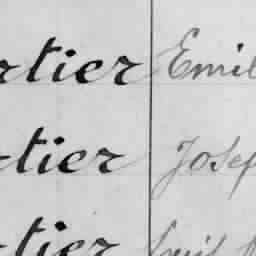 rtier Emil
rtier Josep
rtier Louis